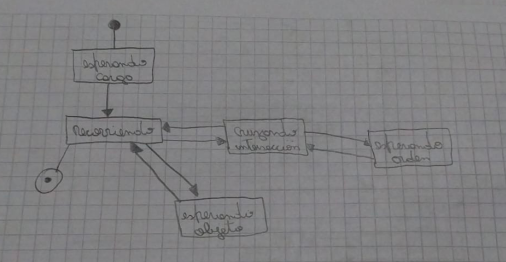 esperando
carga
recorriendo
cruzando
intersección
esperando
orden
esperando
objeto